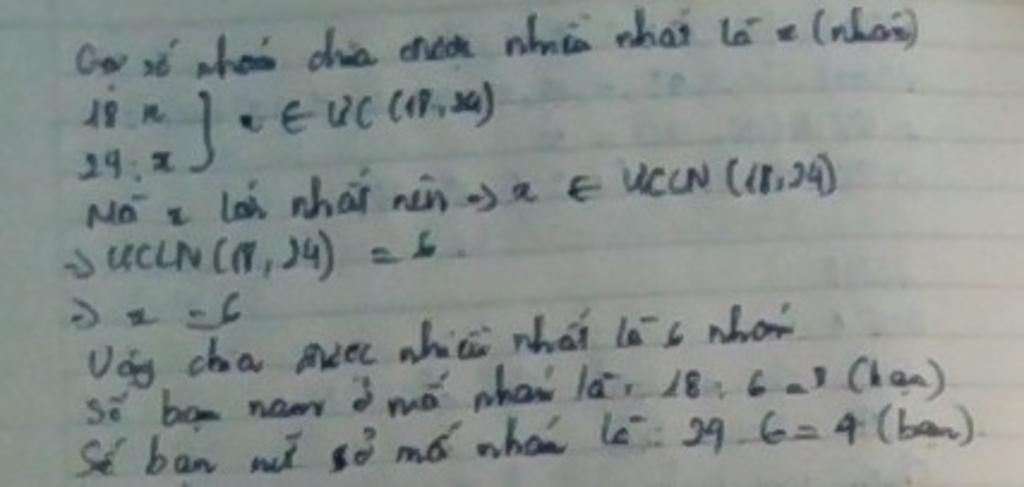 Gọi số nhóm chia được nhiều nhất là x (nhóm)
18 x } x ∈ ƯC (18,24)
24 : x
Mà x lớn nhất nên => x ∈ ƯCLN (18,24)
=> ƯCLN (18, 24) = 6.
=> x = 6
Vậy chia được nhiều nhất là 6 nhóm
Số bạn nam ở mỗi nhóm là: 18 : 6 = 3 (bạn)
Số bạn nữ ở mỗi nhóm là: 24 6 = 4 (bạn)